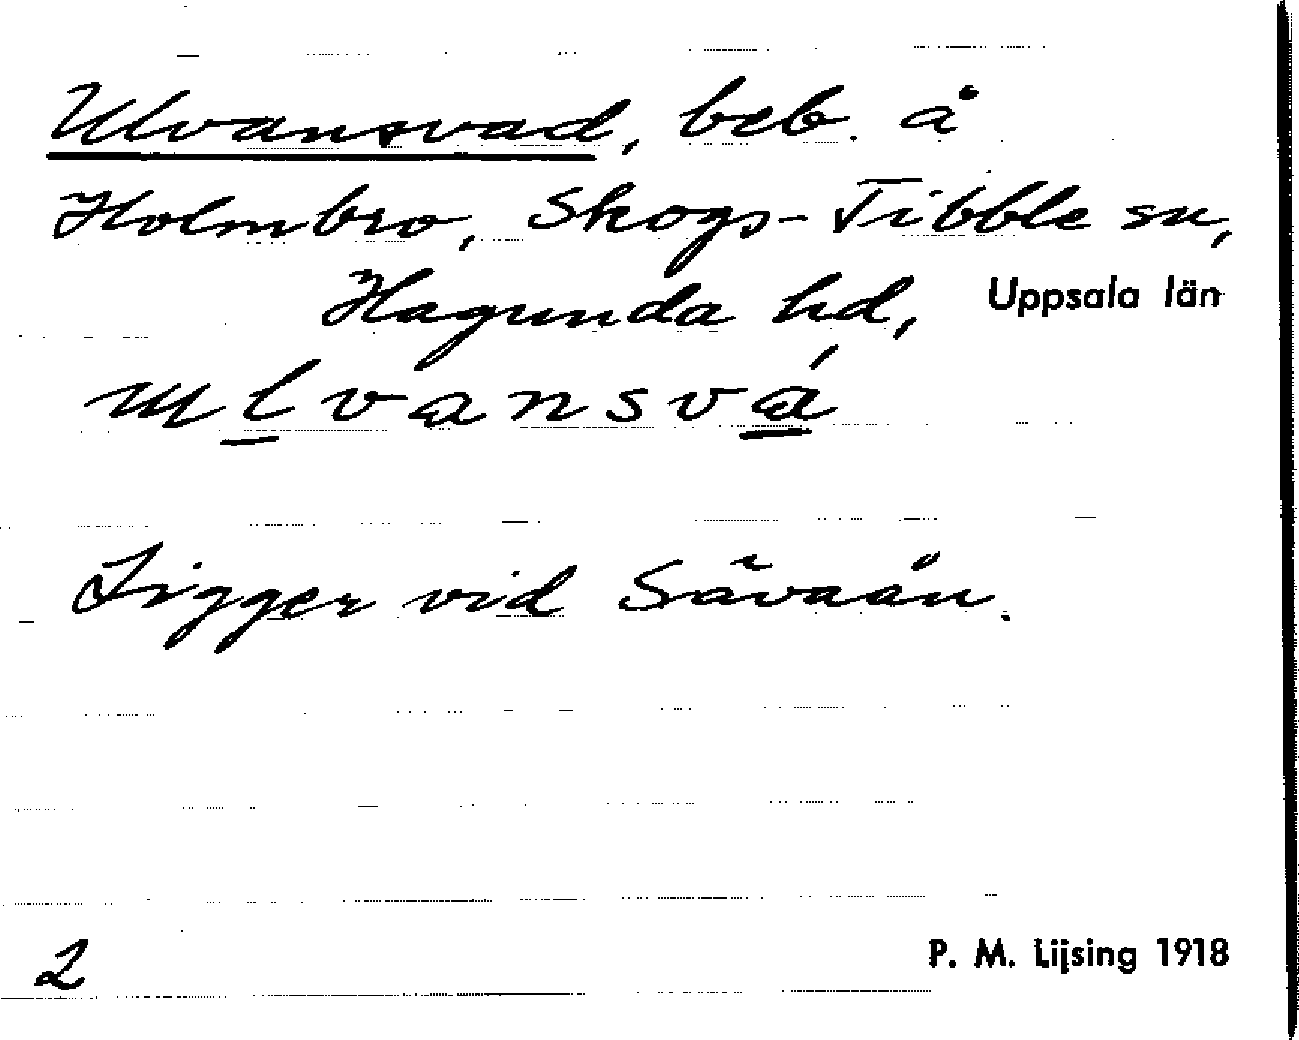 Ulvansvad, beb. å
Holmbro, Skogs-Tibble sn,
Hagunda hd, Uppsala län
ulvansvá
Ligger vid Sävaån.
2
P. M. Lijsing 1918